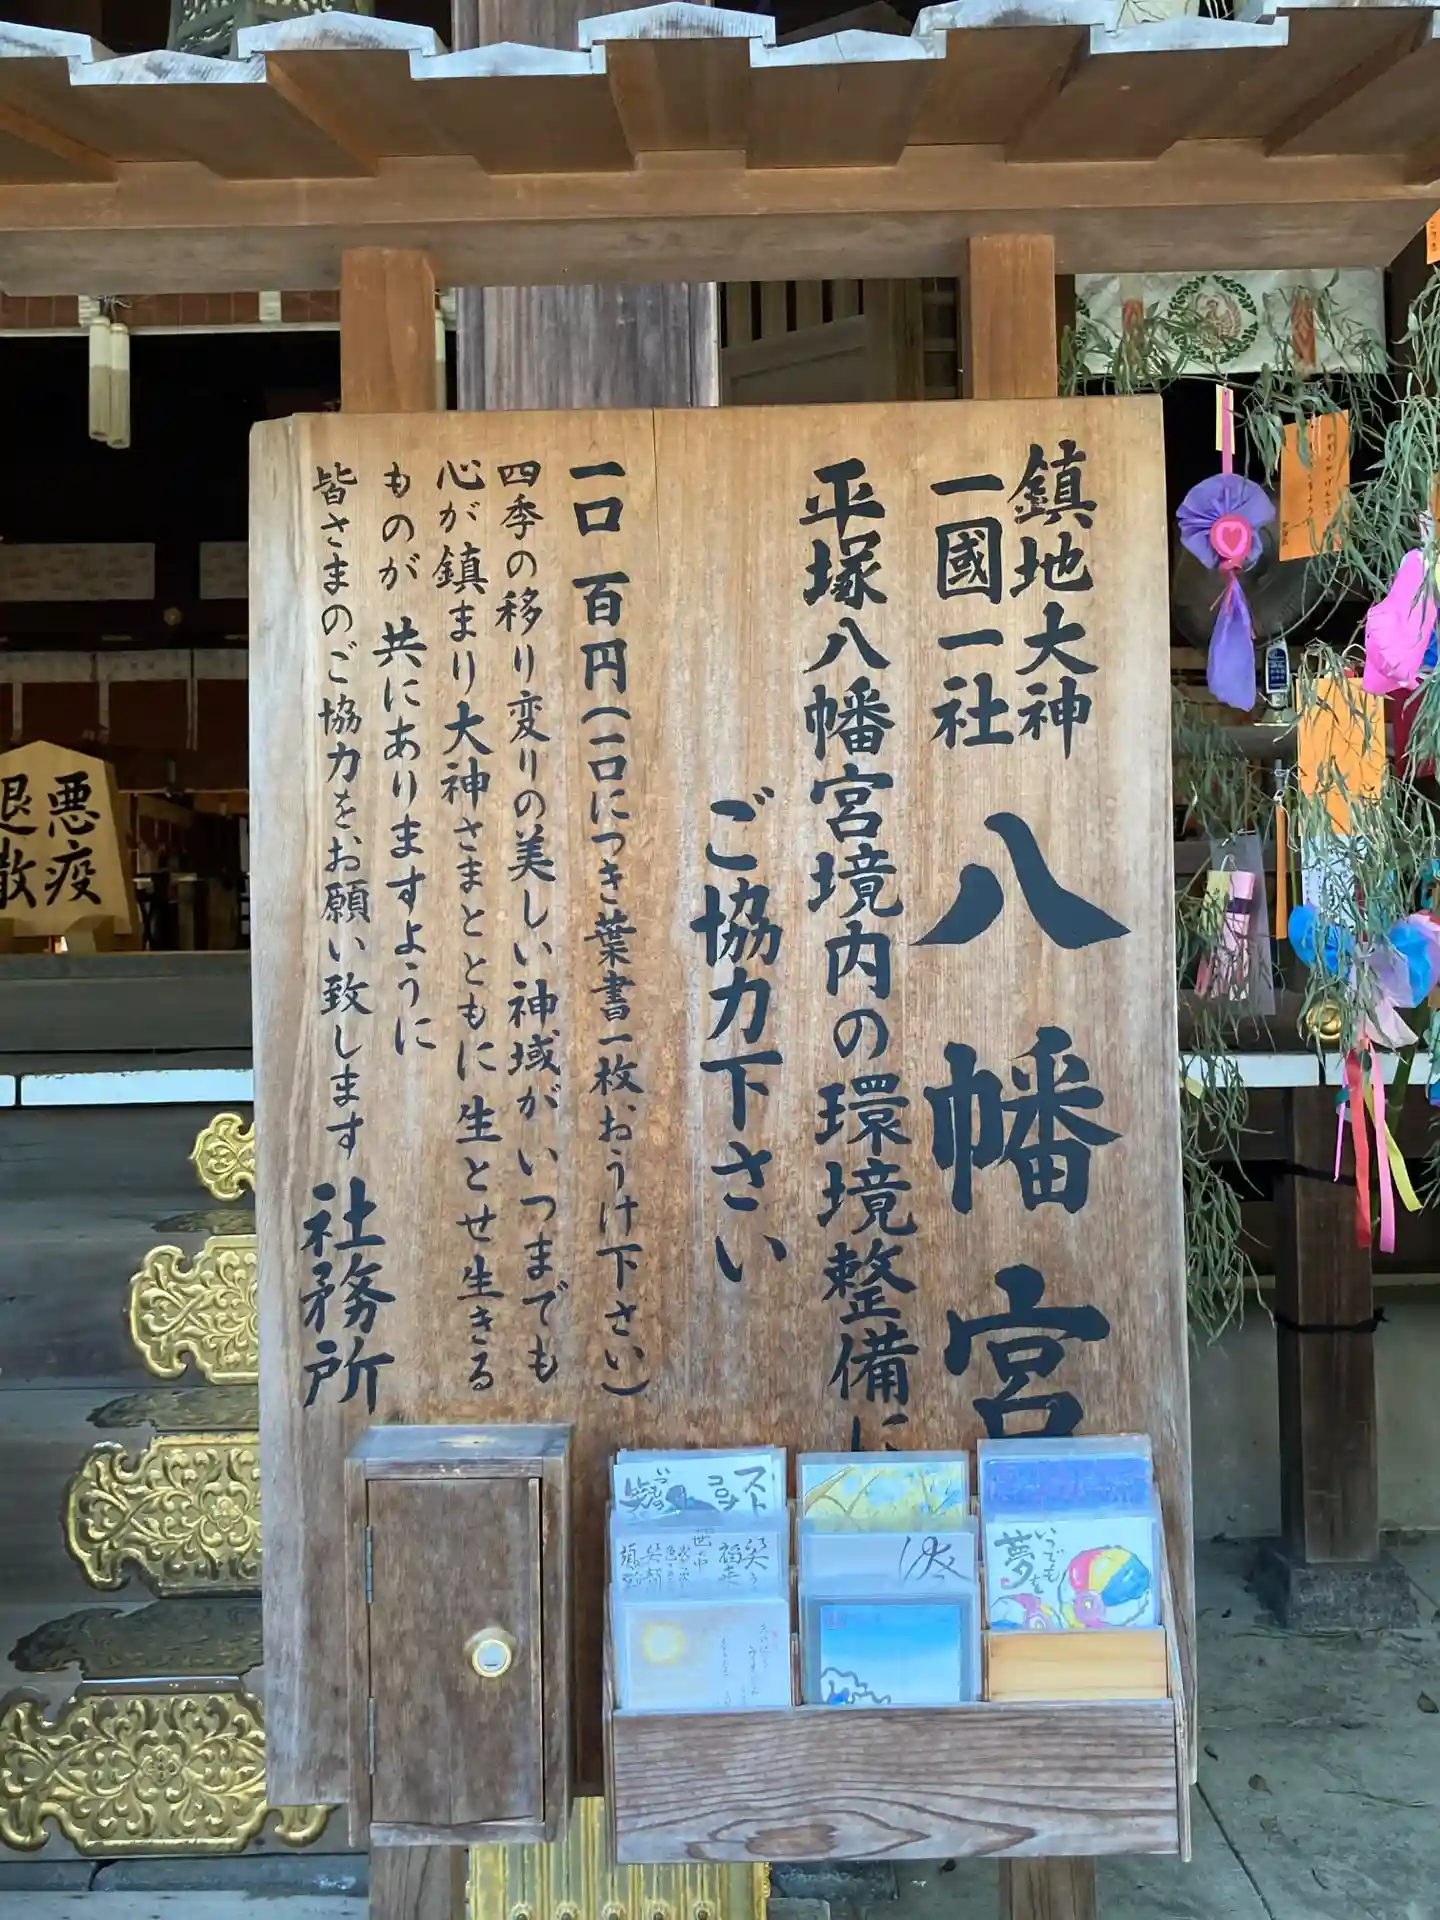 鎮地大神
一國一社
八幡宮
平塚八幡宮境内の環境整備に
ご協力下さい
一口 百円（一口につき葉書一枚おうけ下さい）
四季の移り変りの美しい神域が いつまでも
心が鎮まり大神さまとともに生とせ生きる
ものが 共にありますように
皆さまのご協力をお願い致します 社務所
悪疫
退散
いつでも
夢を
ストロ
コロナ
笑う
福来
世の中
笑顔